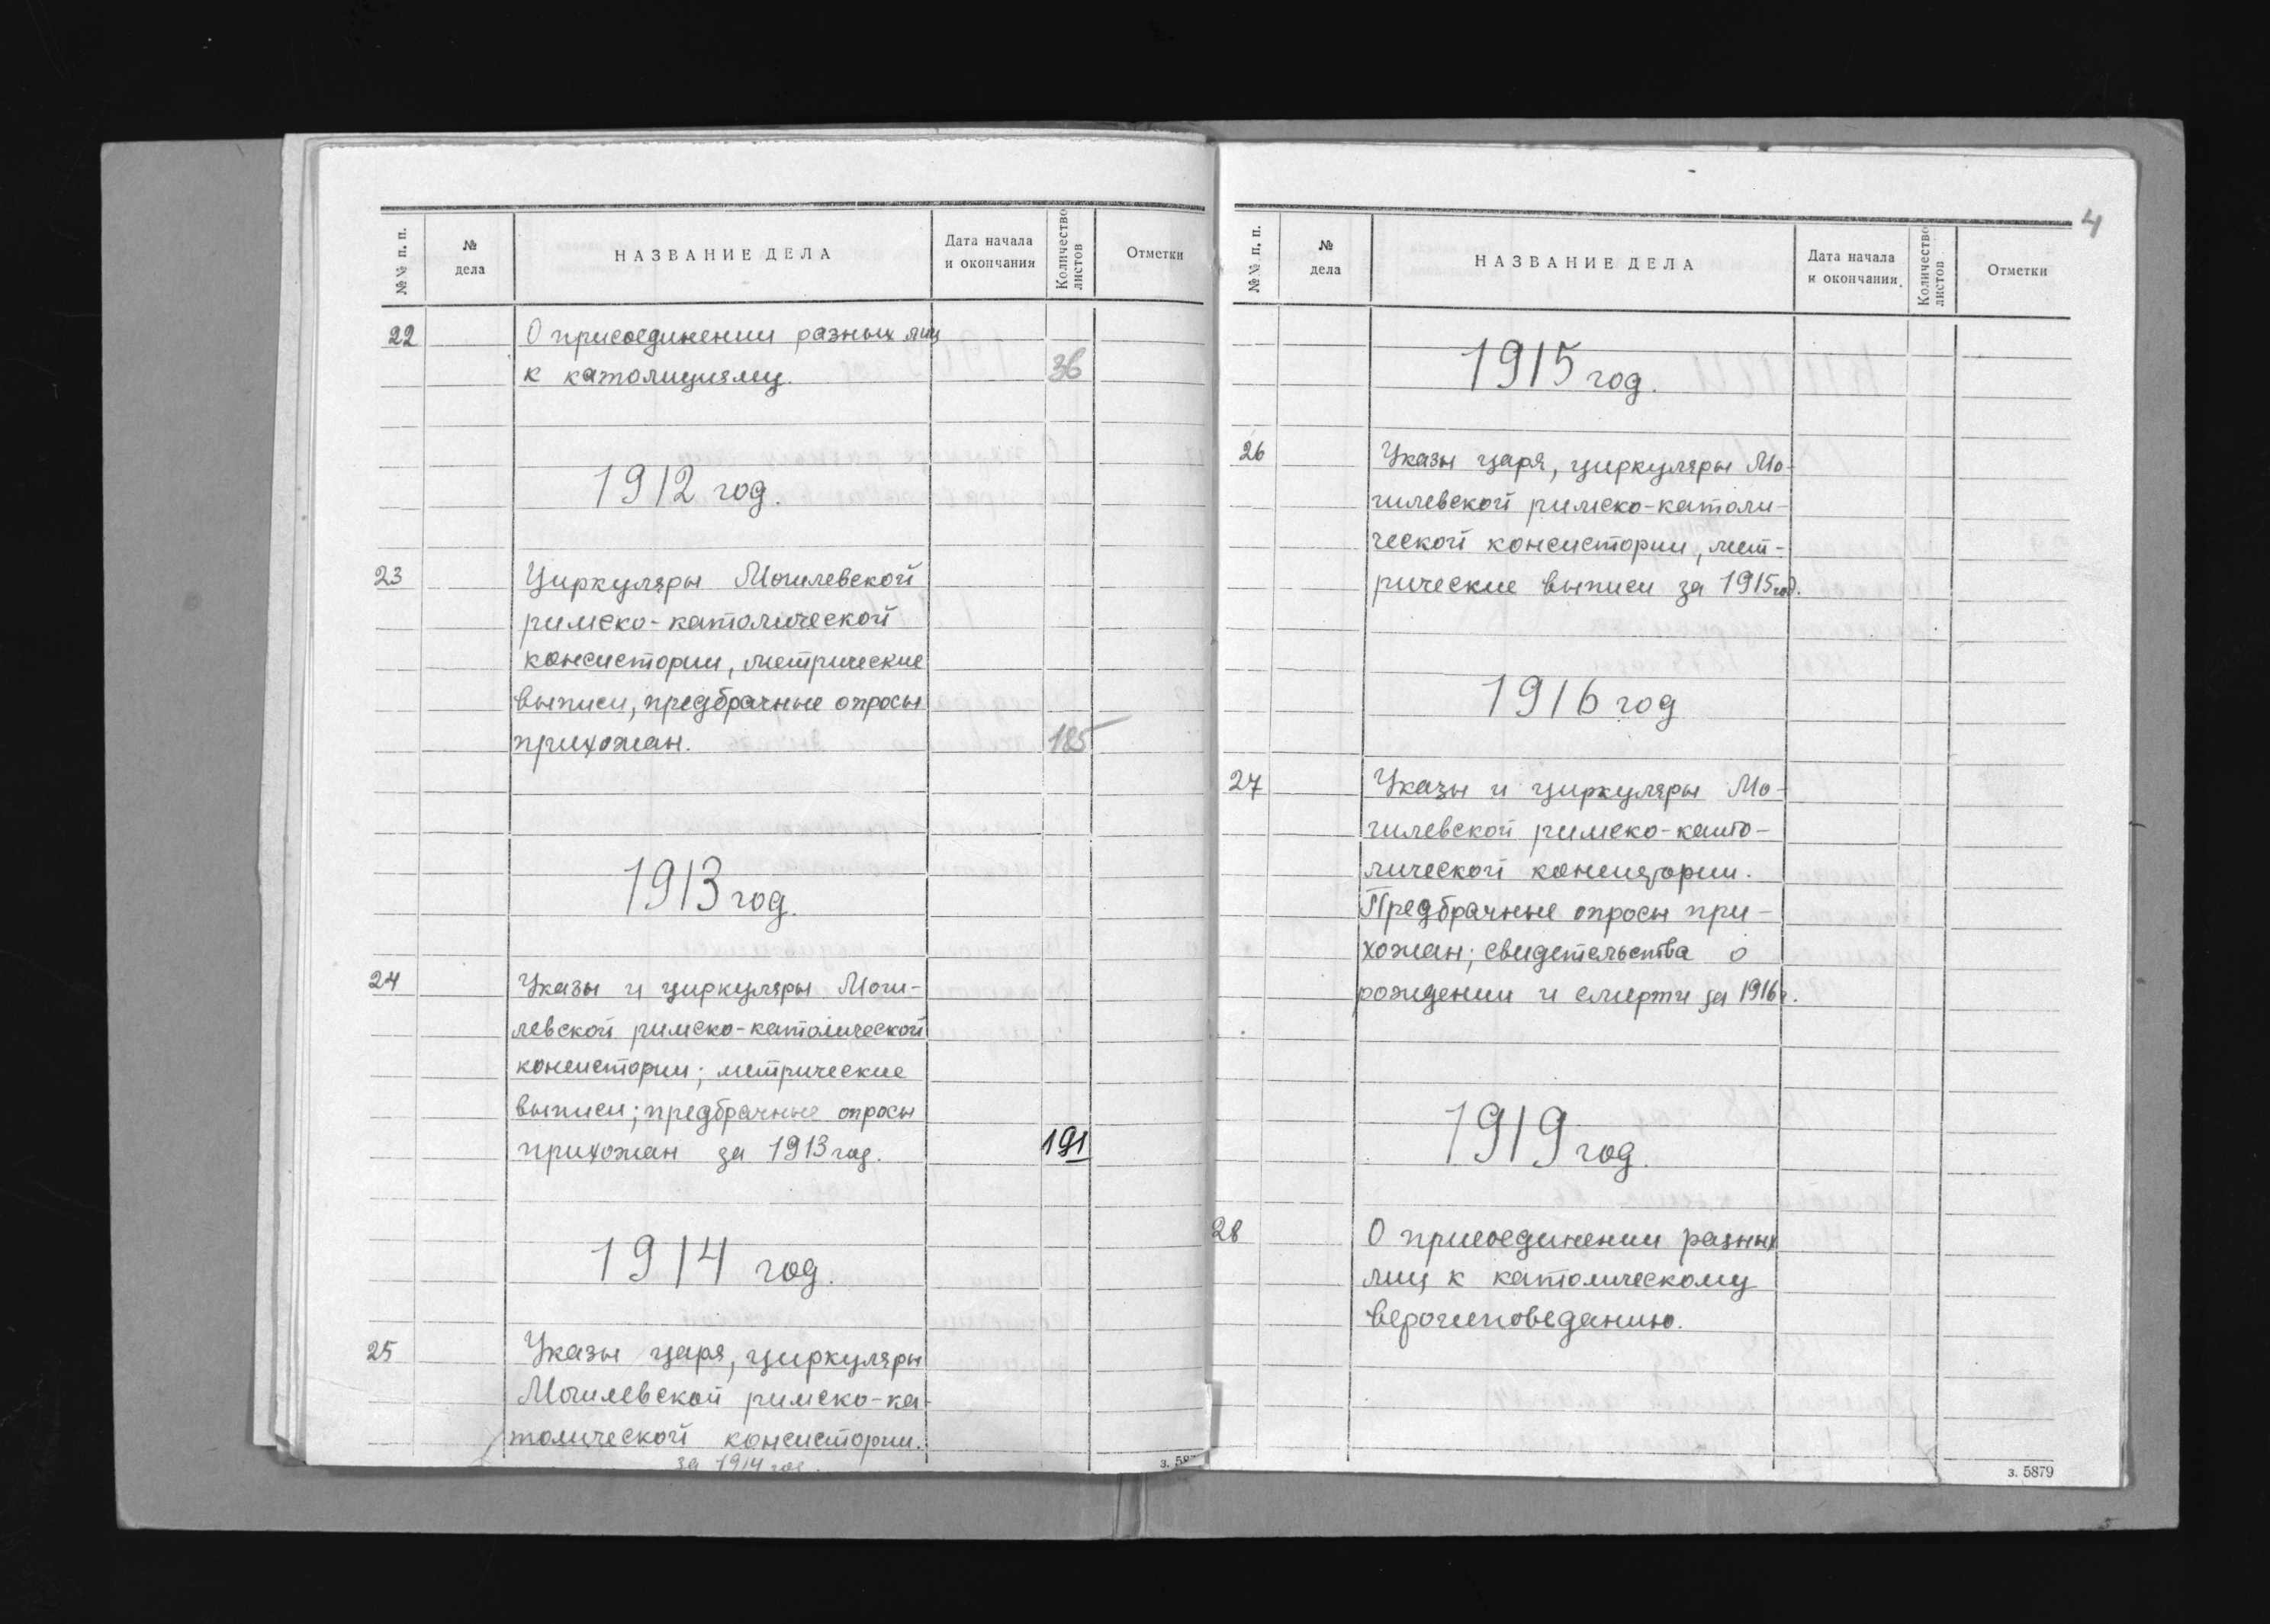 №№ п. п.
№ дела
НАЗВАНИЕ ДЕЛА
Дата начала и окончания
Количество листов
Отметки
22
О присоединении разных лиц
к католицизму.
36
1912 год.
23
Циркуляры Могилевской
римско-католической
консистории, метрические
выписи, предбрачные опросы
прихожан.
185
1913 год.
24
Указы и циркуляры Моги-
левской римско-католической
консистории; метрические
выписи; предбрачные опросы
прихожан за 1913 год.
191
1914 год.
25
Указы царя, циркуляры
Могилевской римско-ка-
толической консистории.
за 1914 год.
4
№№ п. п.
№ дела
НАЗВАНИЕ ДЕЛА
Дата начала и окончания
Количество листов
Отметки
1915 год.
26
Указы царя, циркуляры Мо-
гилевской римско-католи-
ческой консистории, мет-
рические выписи за 1915 год.
1916 год
27
Указы и циркуляры Мо-
гилевской римско-като-
лической консистории.
Предбрачные опросы при-
хожан; свидетельства о
рождении и смерти за 1916 г.
1919 год.
28
О присоединении разных
лиц к католическому
вероисповеданию.
з. 5879